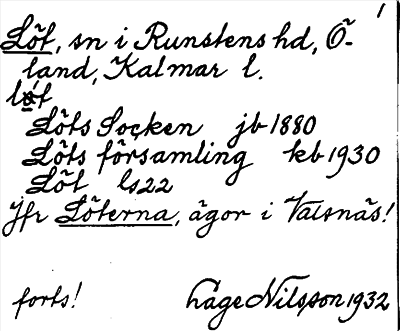 1
Löt, sn i Runstens hd, Ö-
land, Kalmar l.
löt
Löts Socken jb 1880
Löts församling kb 1930
Löt ls 22
Jfr Löterna, ägor i Valsnäs!
forts! Låge Nilsson 1932